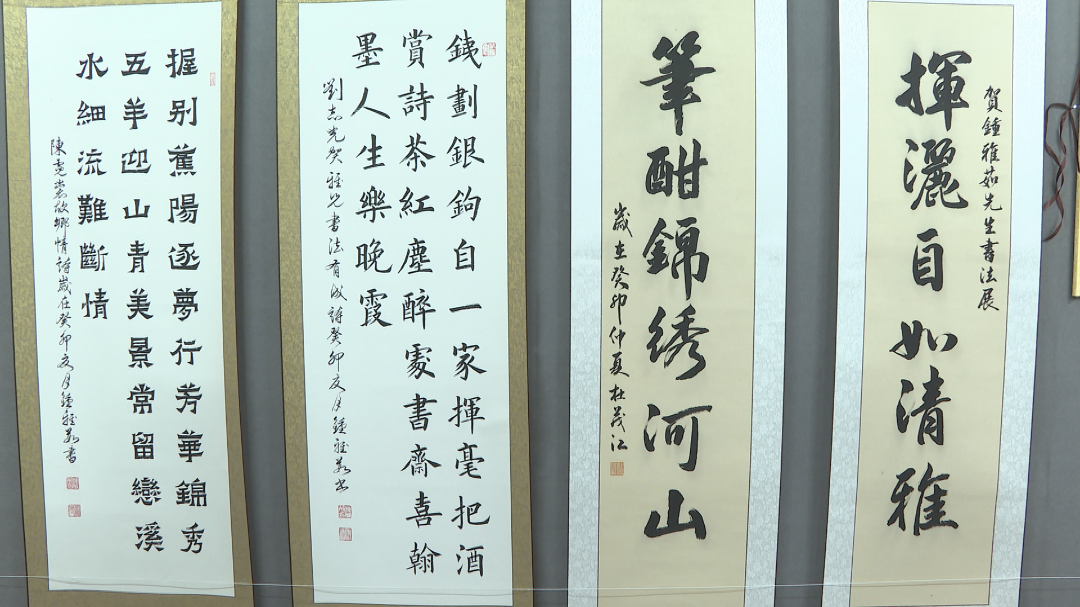 賀鍾雅茹先生書法展
揮灑自如清雅
筆酣錦绣河山
歲在癸卯仲夏杜茂江
銕劃銀鉤自一家揮毫把酒
賞詩茶紅塵醉處書齋喜翰
墨人生樂晚霞
劉志光賀雅兄書法有成詩癸卯夏月鍾雅茹书
握别蕉陽逐夢行芳華錦秀
五羊迎山青美景常留戀溪
水細流難斷情
陳故鄉情詩歲在癸卯夏月鍾雅茹書